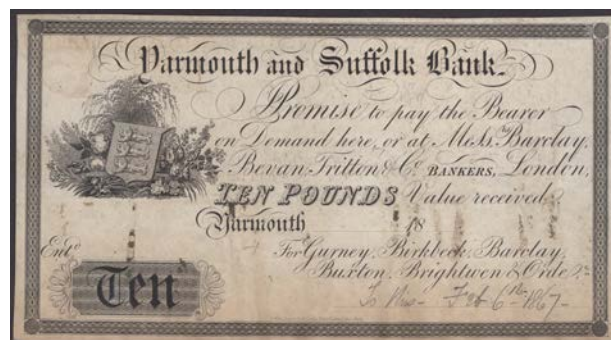 Yarmouth and Suffolk Bank.
Promise to pay the Bearer
on Demand here, or at Mess. Barclay,
Bevan, Tritton & Co. BANKERS, London,
TEN POUNDS Value received.
Yarmouth 18
Entd.
For Gurney, Birkbeck, Barclay,
Buxton, Brightwen & Orde
Ten
Feb 6th 1867